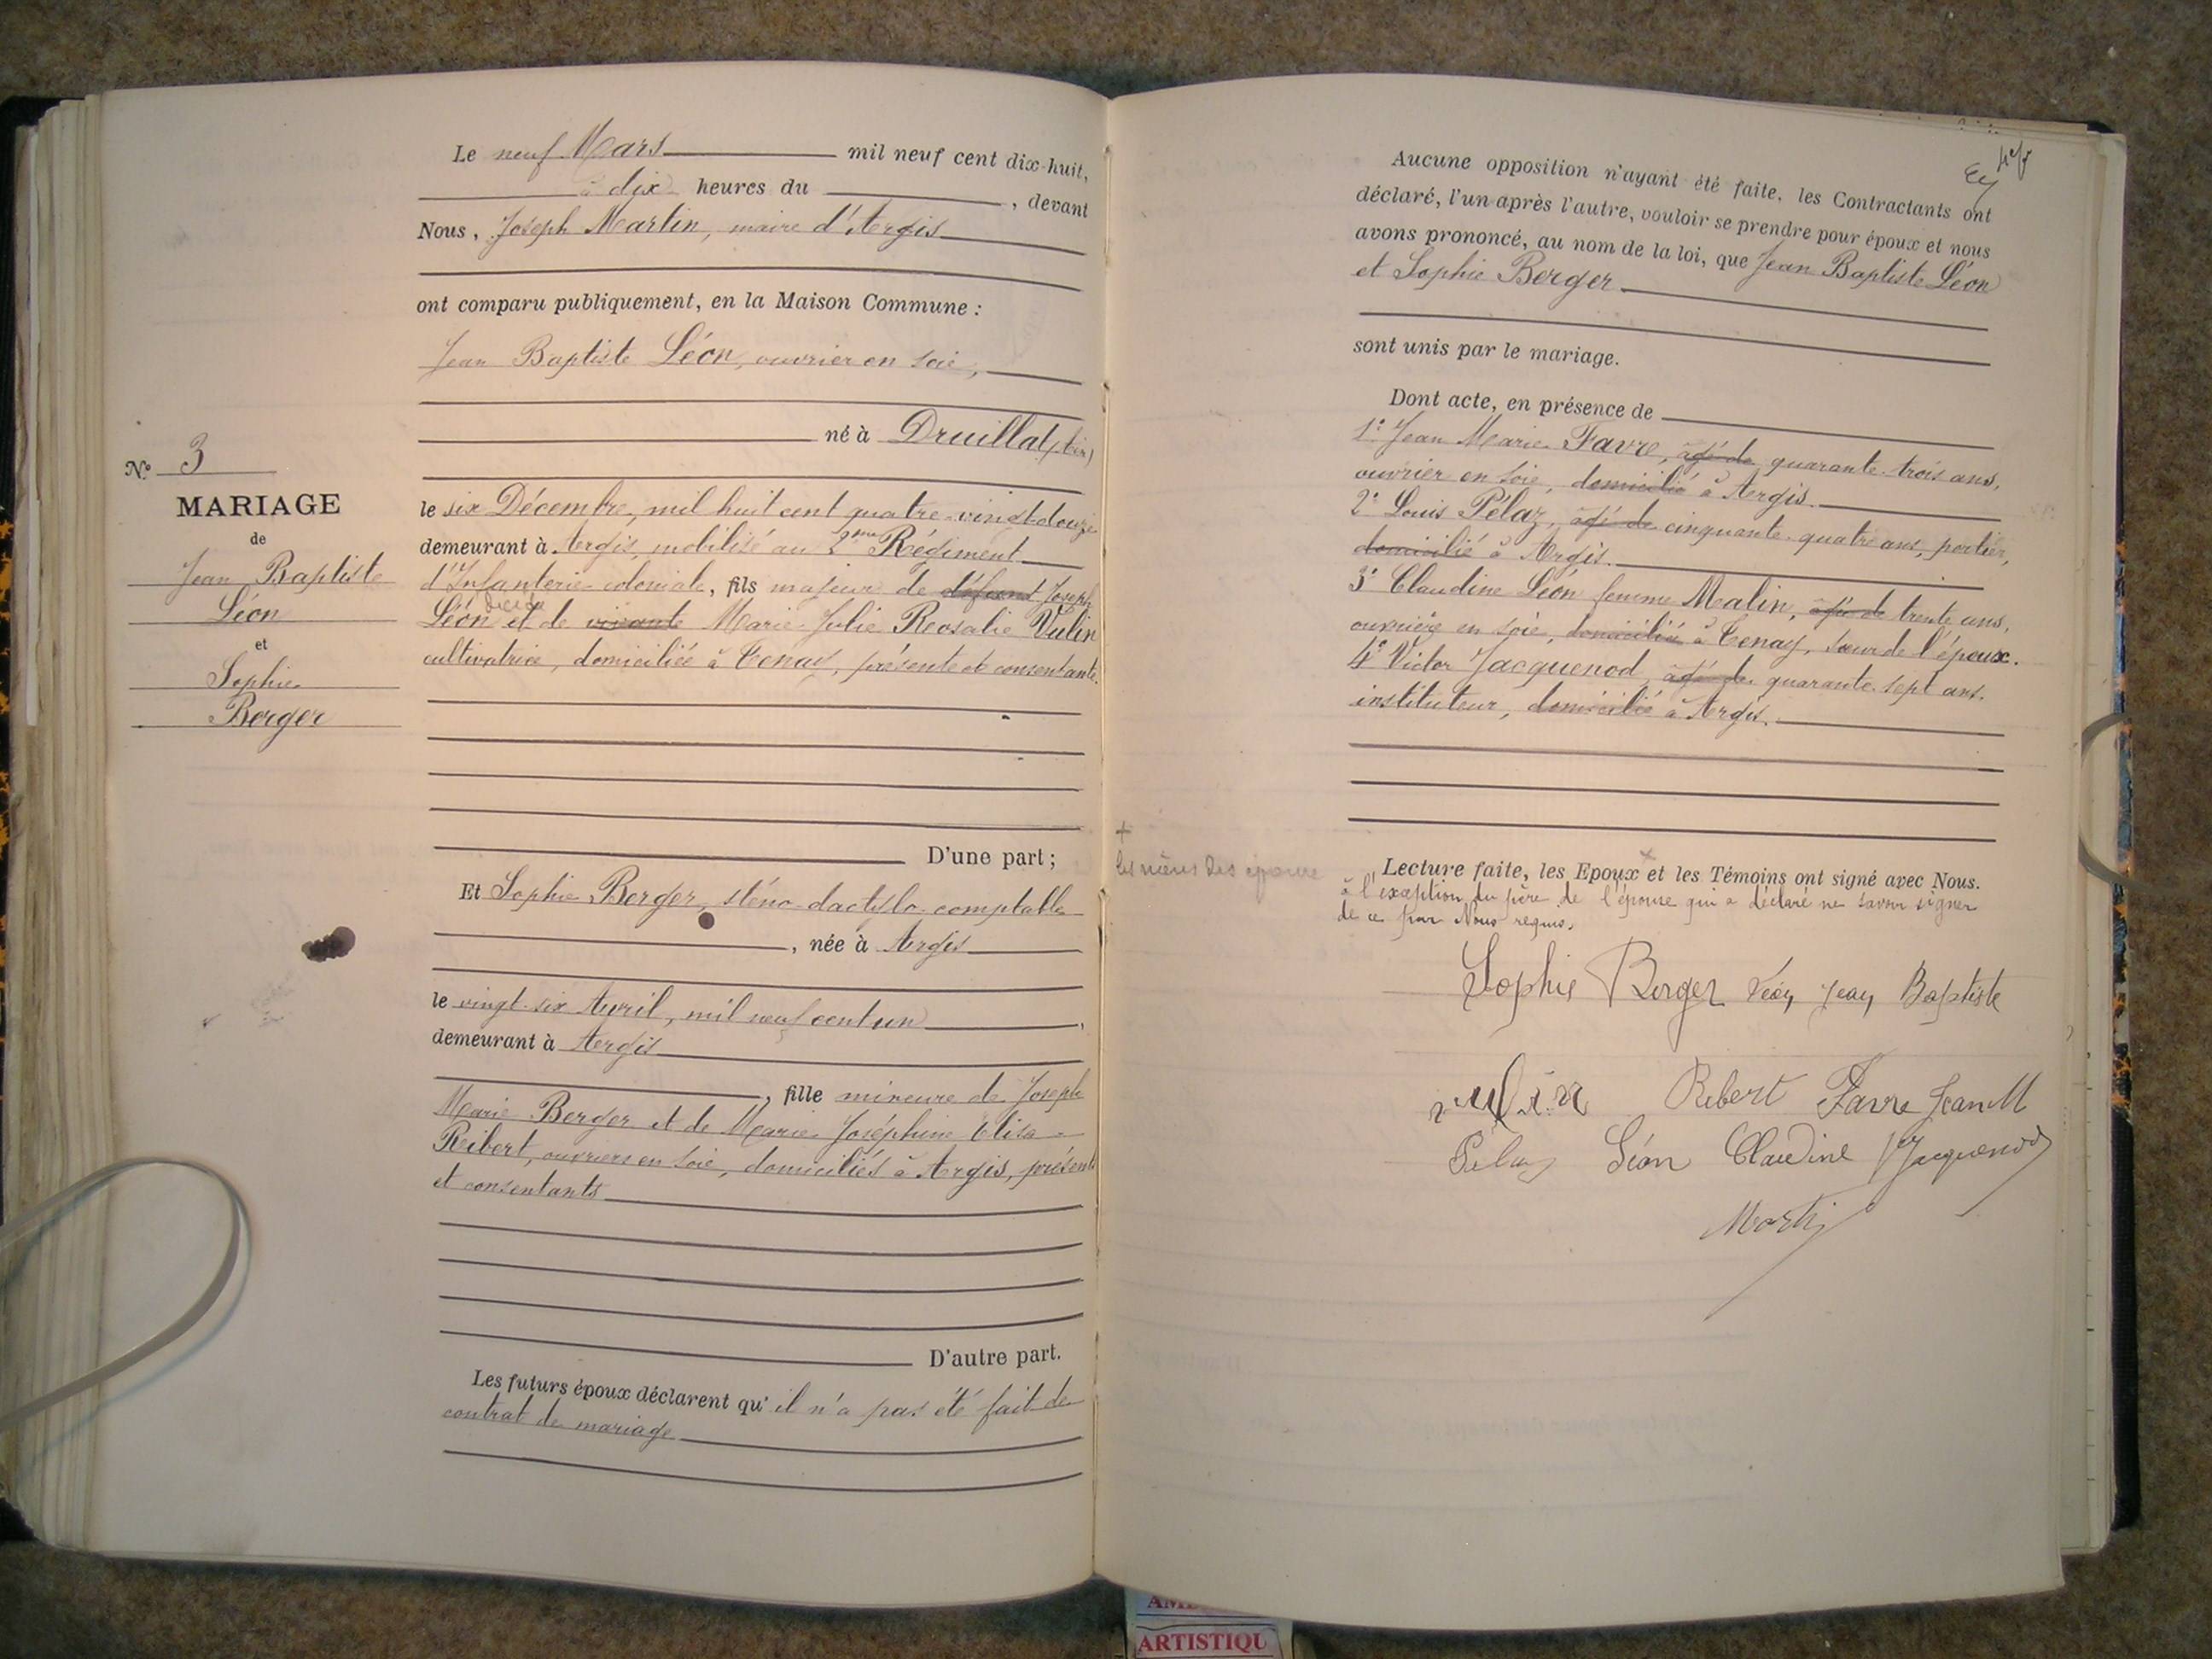 Le neuf Mars mil neuf cent dix-huit,
à dix heures du , devant
Nous, Joseph Martin, maire d'Argis
ont comparu publiquement, en la Maison Commune :
Jean Baptiste Léon, ouvrier en soie,
né à Druillat (Ain)
le six Décembre, mil huit cent quatre-vingt-douze
demeurant à Argis, mobilisé au 2me Régiment
d'Infanterie coloniale, fils majeur de défunt Joseph
Léon décédé et de vivante Marie-Julie Rosalie Vulin
cultivatrice, domiciliée à Tenay, présente et consentante.
D'une part ;
Et Sophie Berger, sténo-dactylo-comptable
, née à Argis
le vingt-six Avril, mil neuf cent un ,
demeurant à Argis
, fille mineure de Joseph
Marie Berger et de Marie-Joséphine Elisa
Reibert, ouvriers en soie, domiciliés à Argis, présents
et consentants
D'autre part.
Les futurs époux déclarent qu'il n'a pas été fait de
contrat de mariage
No 3
MARIAGE
de
Jean Baptiste
Léon
et
Sophie
Berger
Aucune opposition n'ayant été faite, les Contractants ont
déclaré, l'un après l'autre, vouloir se prendre pour époux et nous
avons prononcé, au nom de la loi, que Jean Baptiste Léon
et Sophie Berger
sont unis par le mariage.
Dont acte, en présence de
1° Jean Marie Favre, âgé de quarante-trois ans,
ouvrier en soie, domicilié à Argis.
2° Louis Pélaz, âgé de cinquante-quatre ans, portier,
domicilié à Argis.
3° Claudine Léon femme Malin, âgée de trente ans,
ouvrière en soie, domiciliée à Tenay, sœur de l'époux.
4° Victor Jacquenod, âgé de quarante-sept ans.
instituteur, domicilié à Argis.
+
les mères des époux
Lecture faite, les Epoux + et les Témoins ont signé avec Nous.
à l'exception du père de l'épouse qui a déclaré ne savoir signer
de ce par Nous requis.
Sophie Berger Léon Jean Baptiste
Vulin Ribert Favre Jean M
Pélaz Léon Claudine Jacquenod
Martin
ARTISTIQU